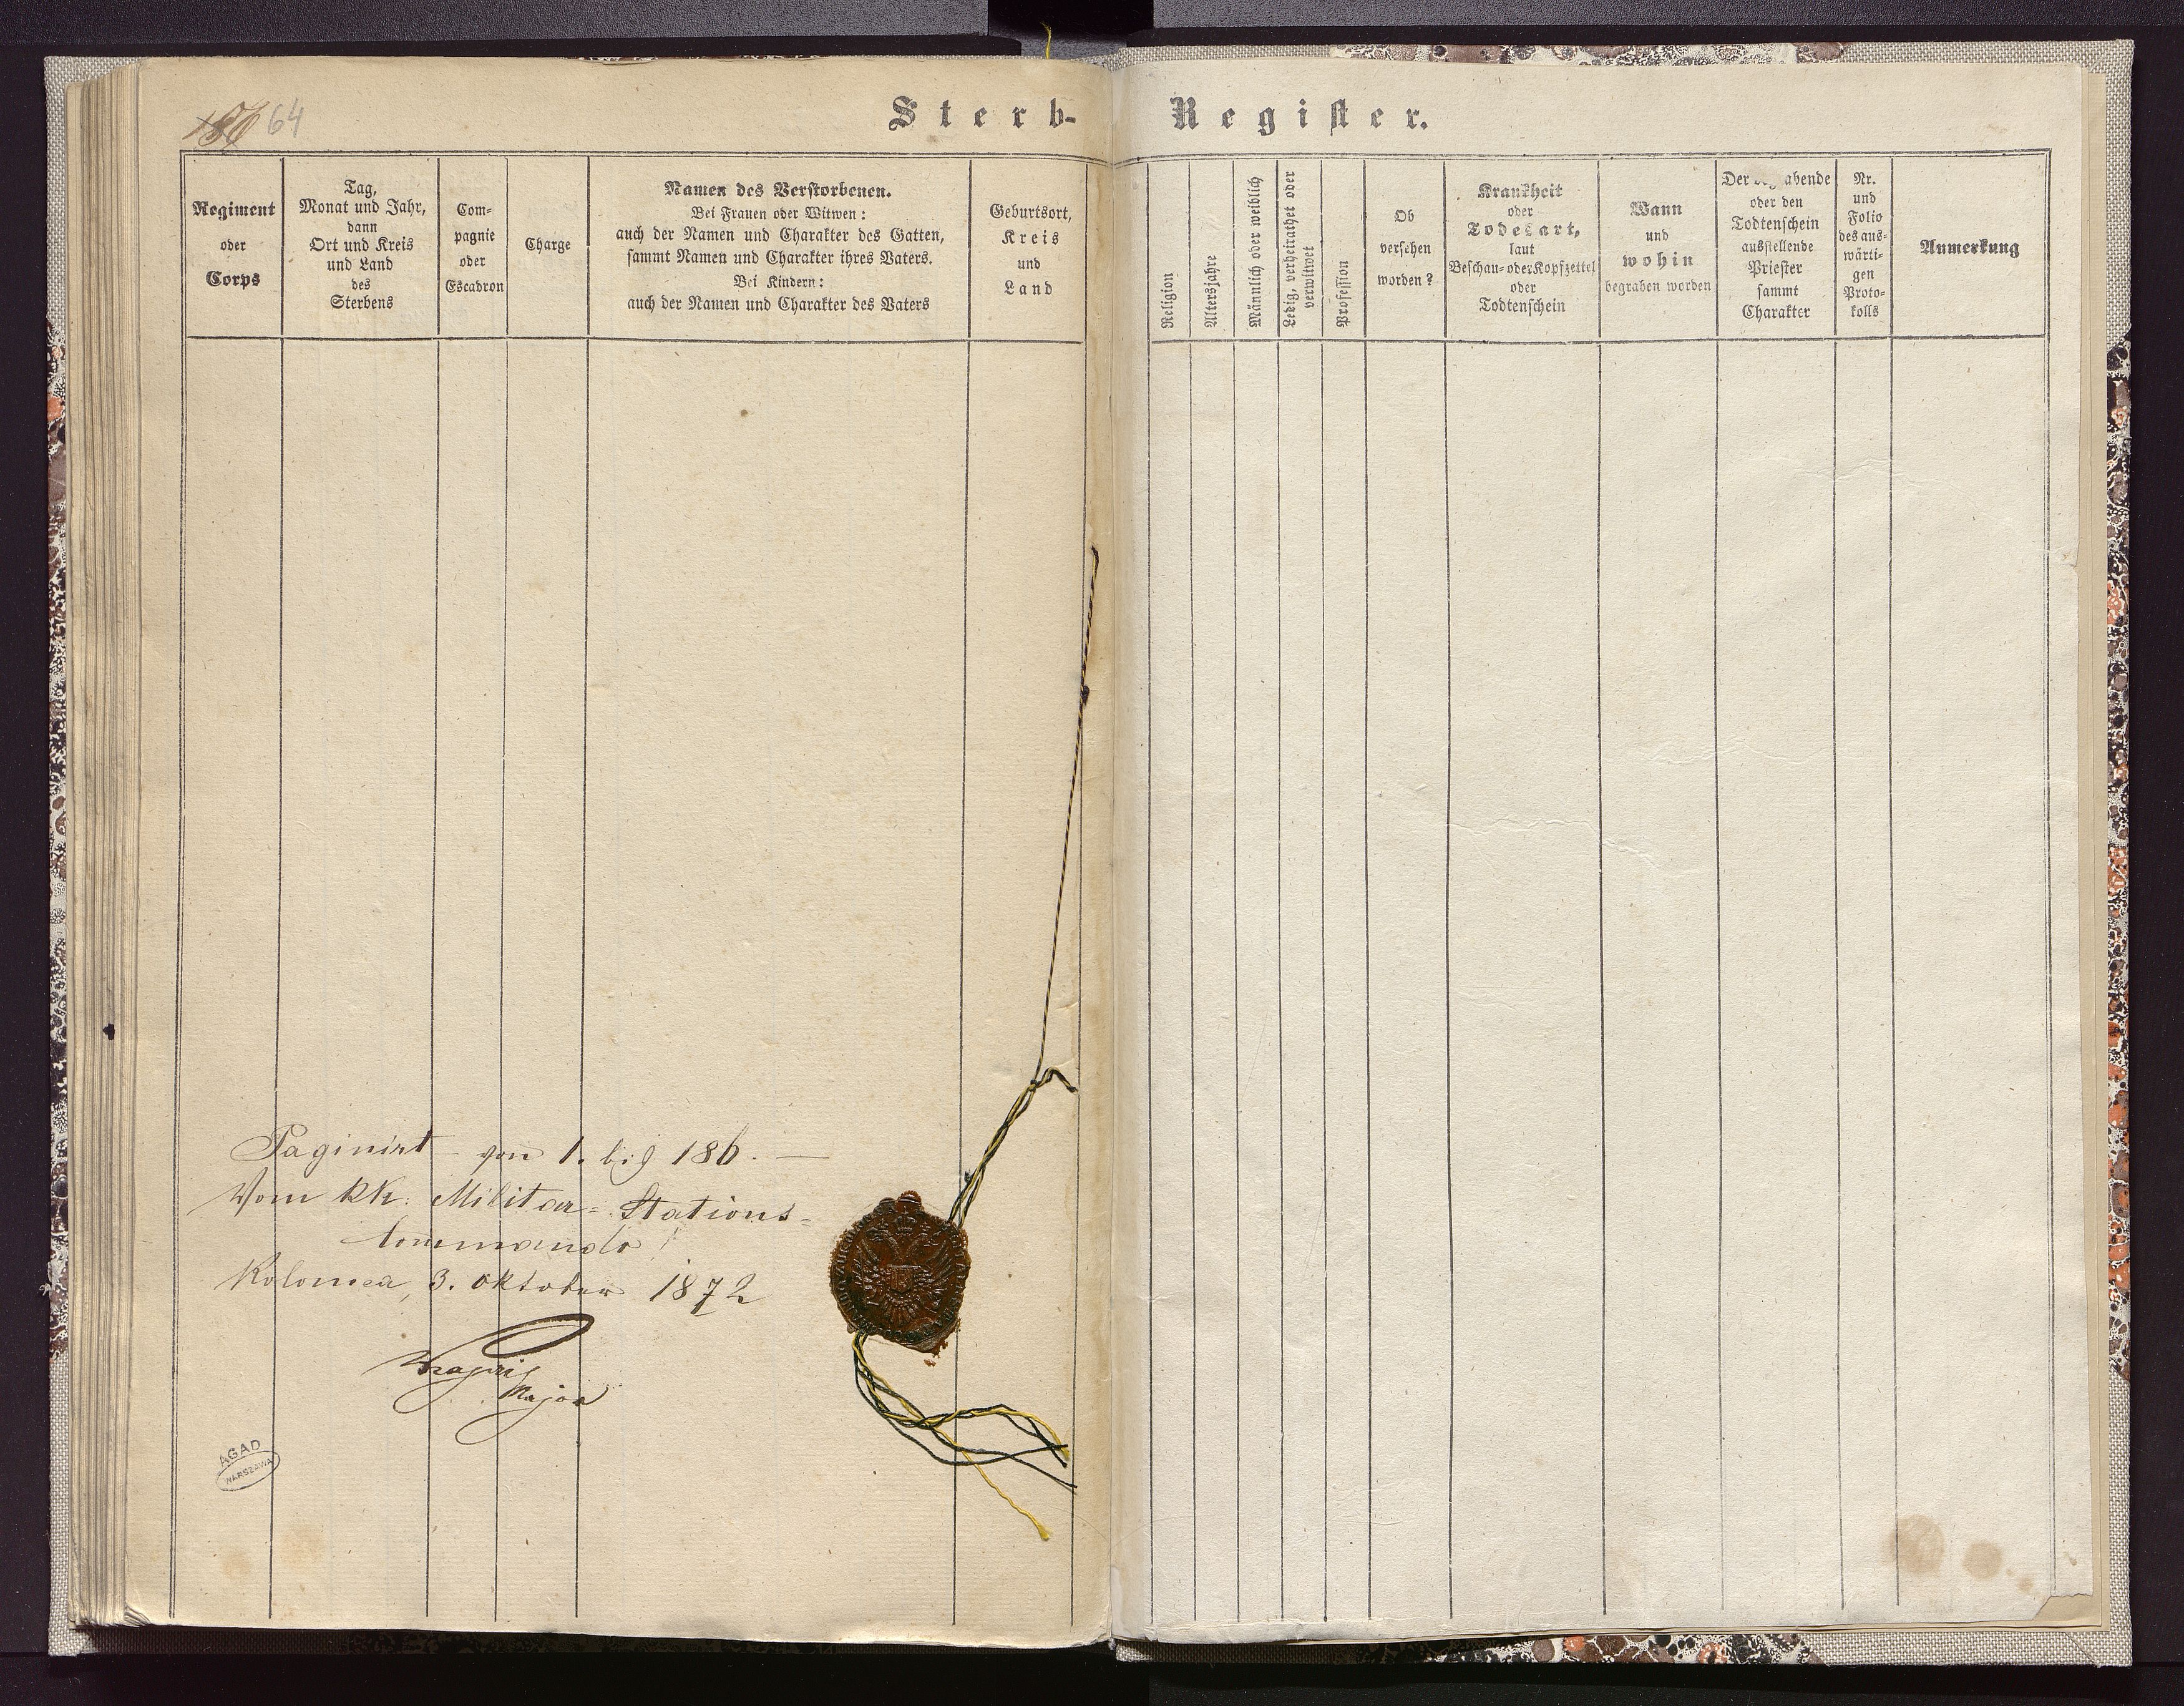 64
Sterb-Register.
Regiment
oder
Corps
Tag,
Monat und Jahr,
dann
Ort und Kreis
und Land
des
Sterbens
Com-
pagnie
oder
Escadron
Charge
Namen des Verstorbenen.
Bei Frauen oder Witwen:
auch der Namen und Charakter des Gatten,
sammt Namen und Charakter ihres Vaters.
Bei Kindern:
auch der Namen und Charakter des Vaters
Geburtsort,
Kreis
und
Land
Religion
Altersjahre
Männlich oder weiblich
Ledig, verheirathet oder
verwitwet
Profession
Ob
versehen
worden?
Krankheit
oder
Todesart,
laut
Beschau- oder Kopfzettel
oder
Todtenschein
Wann
und
wohin
begraben worden
Der
oder den
Todtenschein
ausstellende
Priester
sammt
Charakter
Nr.
und
Folio
des aus-
wärti-
gen
Proto-
kolls
Anmerkung
Paginirt von 1. bis 186. —
Vom KK: Militar=Stations=
Commando
Kolomea, 3. Oktober 1872
Major
AGAD
WARSZAWA